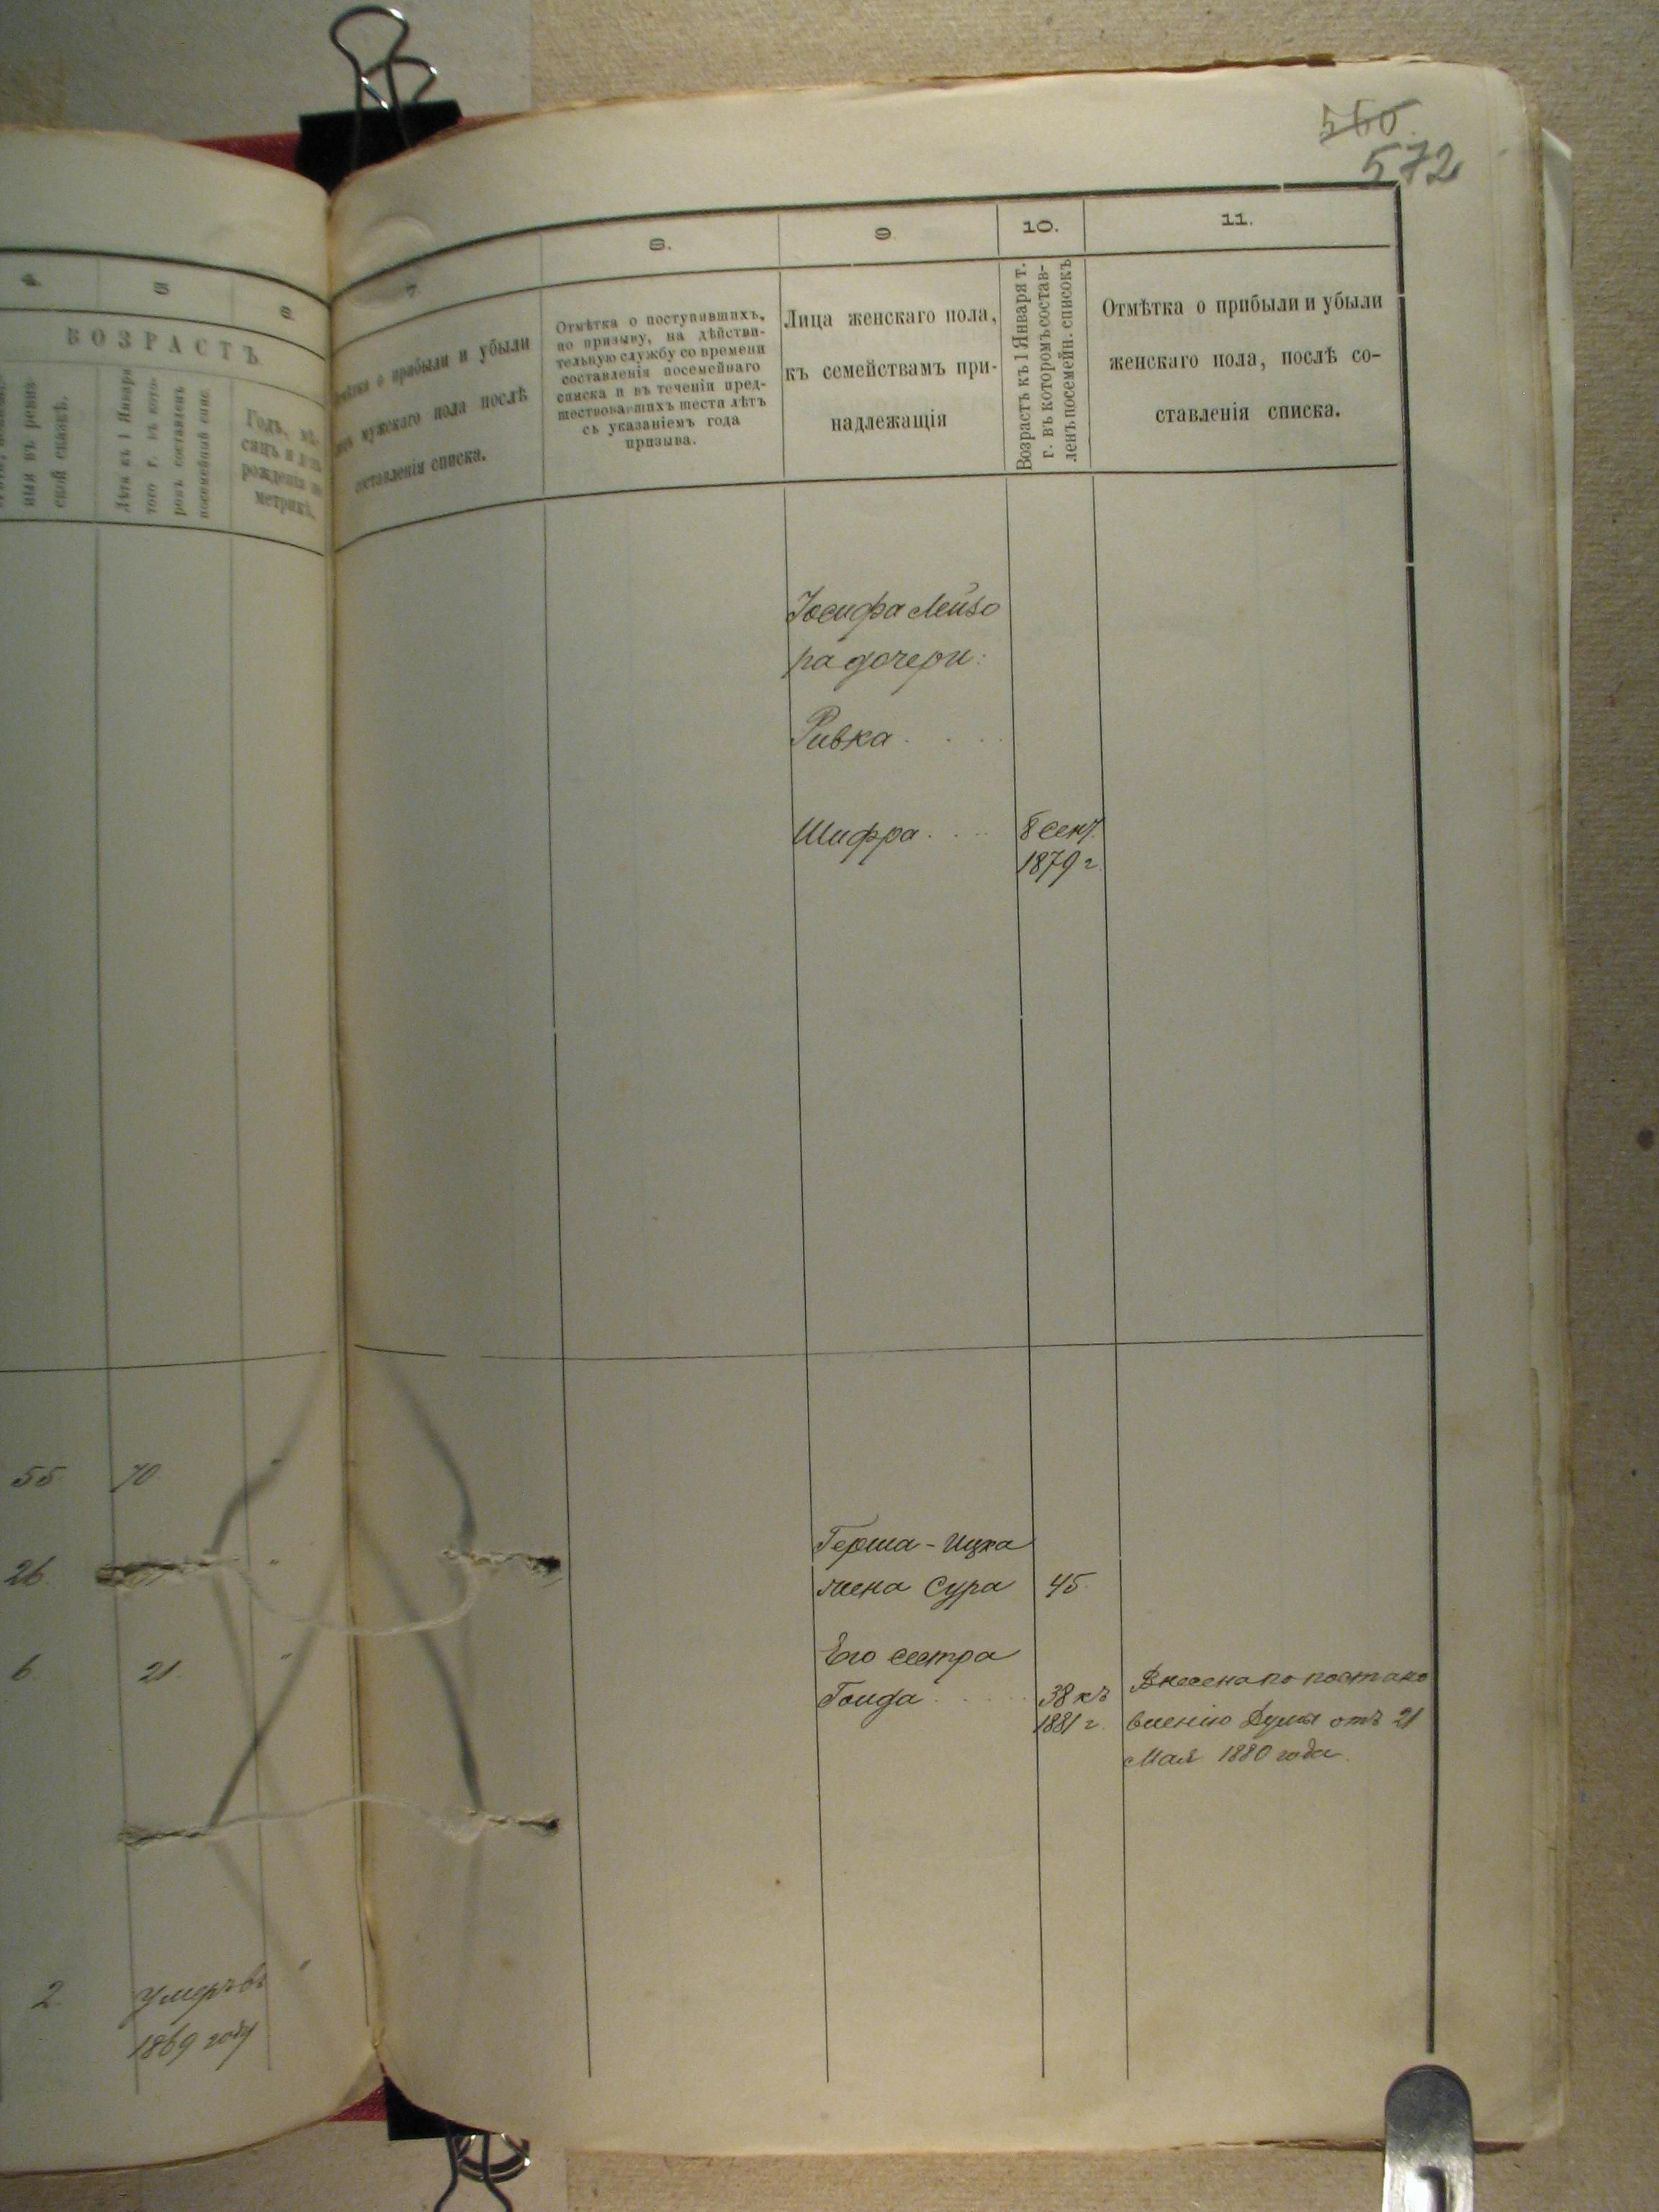 560.
572
4
5
6
ВОЗРАСТЪ
ныя въ ревиз-
ской сказкѣ.
Лѣта къ 1 Января
того г. въ кото-
ромъ составленъ
посемейный спис.
Годъ, мѣ-
сяцъ и день
рожденія по
метрикѣ.
55
70
26
6
21
2
умеръ въ
1869 году
7
о прибыли и убыли
мужскаго пола послѣ
составленія списка.
8.
Отмѣтка о поступившихъ,
по призыву, на дѣйстви-
тельную службу со времени
составленія посемейнаго
списка и въ теченіи пред-
шествовавшихъ шести лѣтъ
съ указаніемъ года
призыва.
9
Лица женскаго пола,
къ семействамъ при-
надлежащія
10.
Возрастъ къ 1 Января т.
г. въ которомъ состав-
ленъ посемейн. списокъ
11.
Отмѣтка о прибыли и убыли
женскаго пола, послѣ со-
ставленія списка.
Іосифа Лейзо
ра дочери:
Ривка
Шифра
8 сент.
1879 г.
Герша-Ицка
жена Сура
45.
Его сестра
Гоида
38 къ
1881 г.
Внесена по постано
вленію Думы отъ 21
Мая 1880 года.